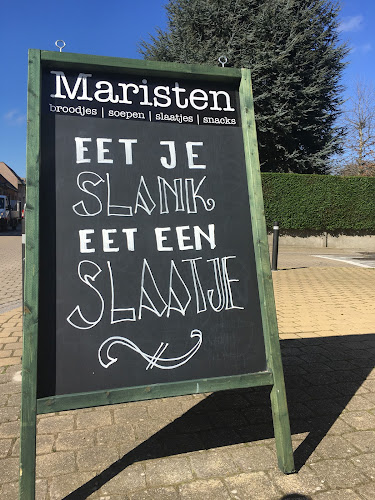 Maristen
broodjes | soepen | slaatjes | snacks
EET JE
SLANK
EET EEN
SLAATJE